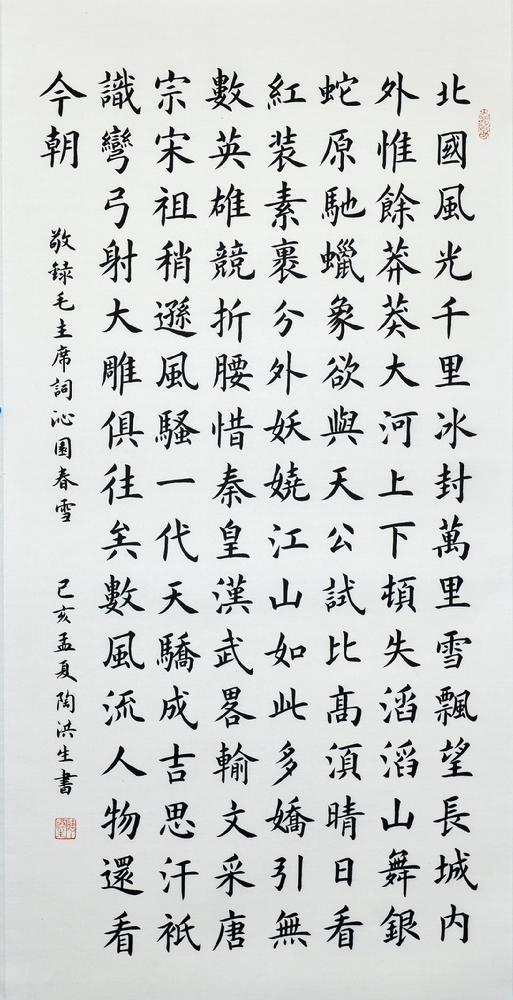 北國風光千里冰封萬里雪飄望長城内
外惟餘莽莽大河上下頓失滔滔山舞銀
蛇原馳蠟象欲與天公試比高須晴日看
紅装素裹分外妖嬈江山如此多嬌引無
數英雄競折腰惜秦皇漢武畧輸文采唐
宗宋祖稍遜風騷一代天驕成吉思汗祇
識彎弓射大雕俱往矣數風流人物還看
今朝
敬録毛主席詞沁園春雪 己亥孟夏陶洪生書